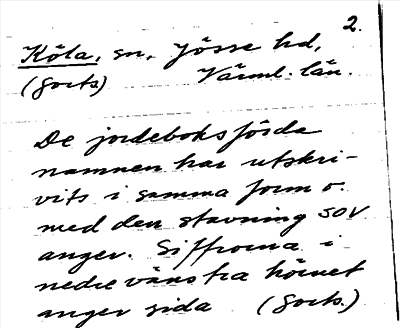 2.
Köla, sn, Jösse hd,
(forts) Värml. län.
De jordeboksförda
namnen har utskri-
vits i samma form o.
med den stavning SOV
anger. Siffrorna i
nedre vänstra hörnet
anger sida (forts.)